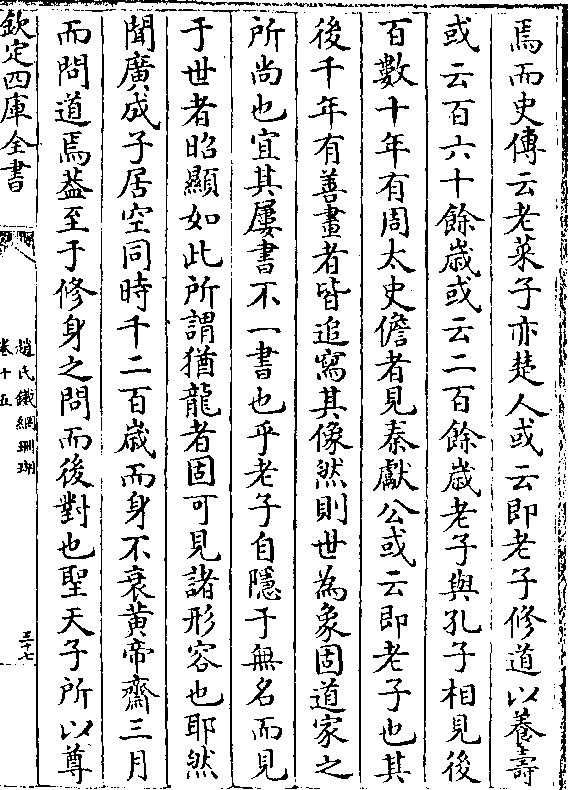 焉而史傳云老萊子亦楚人或云即老子修道以養壽
或云百六十餘嵗或云二百餘嵗老子與孔子相見後
百數十年有周太史儋者見秦獻公或云即老子也其
後千年有善畫者皆追寫其像然則世為象固道家之
所尚也宜其屢書不一書也乎老子自隱于無名而見
于世者昭顯如此所謂猶龍者固可見諸形容也耶然
聞廣成子居空同時千二百嵗而身不衰黄帝齋三月
而問道焉葢至于修身之問而後對也聖天子所以尊
欽定四庫全書
趙氏鐵網珊瑚
卷十五
三十七